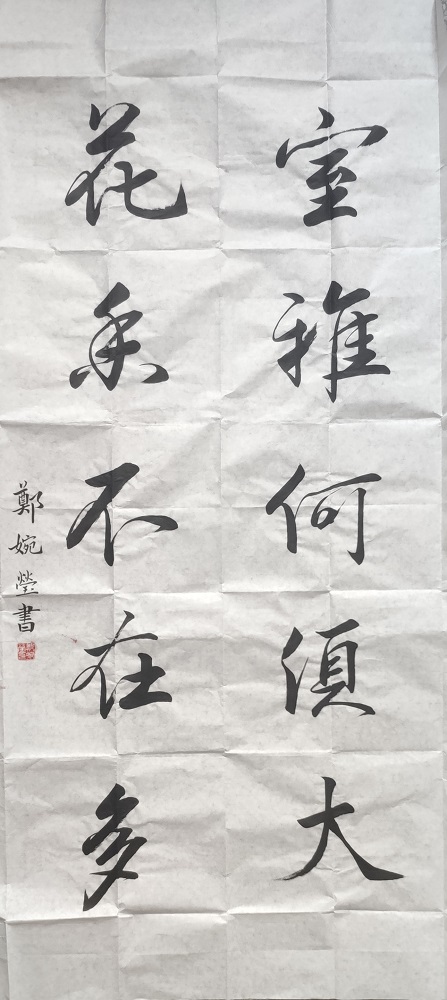 室雅何須大
花香不在多
鄭婉瑩書